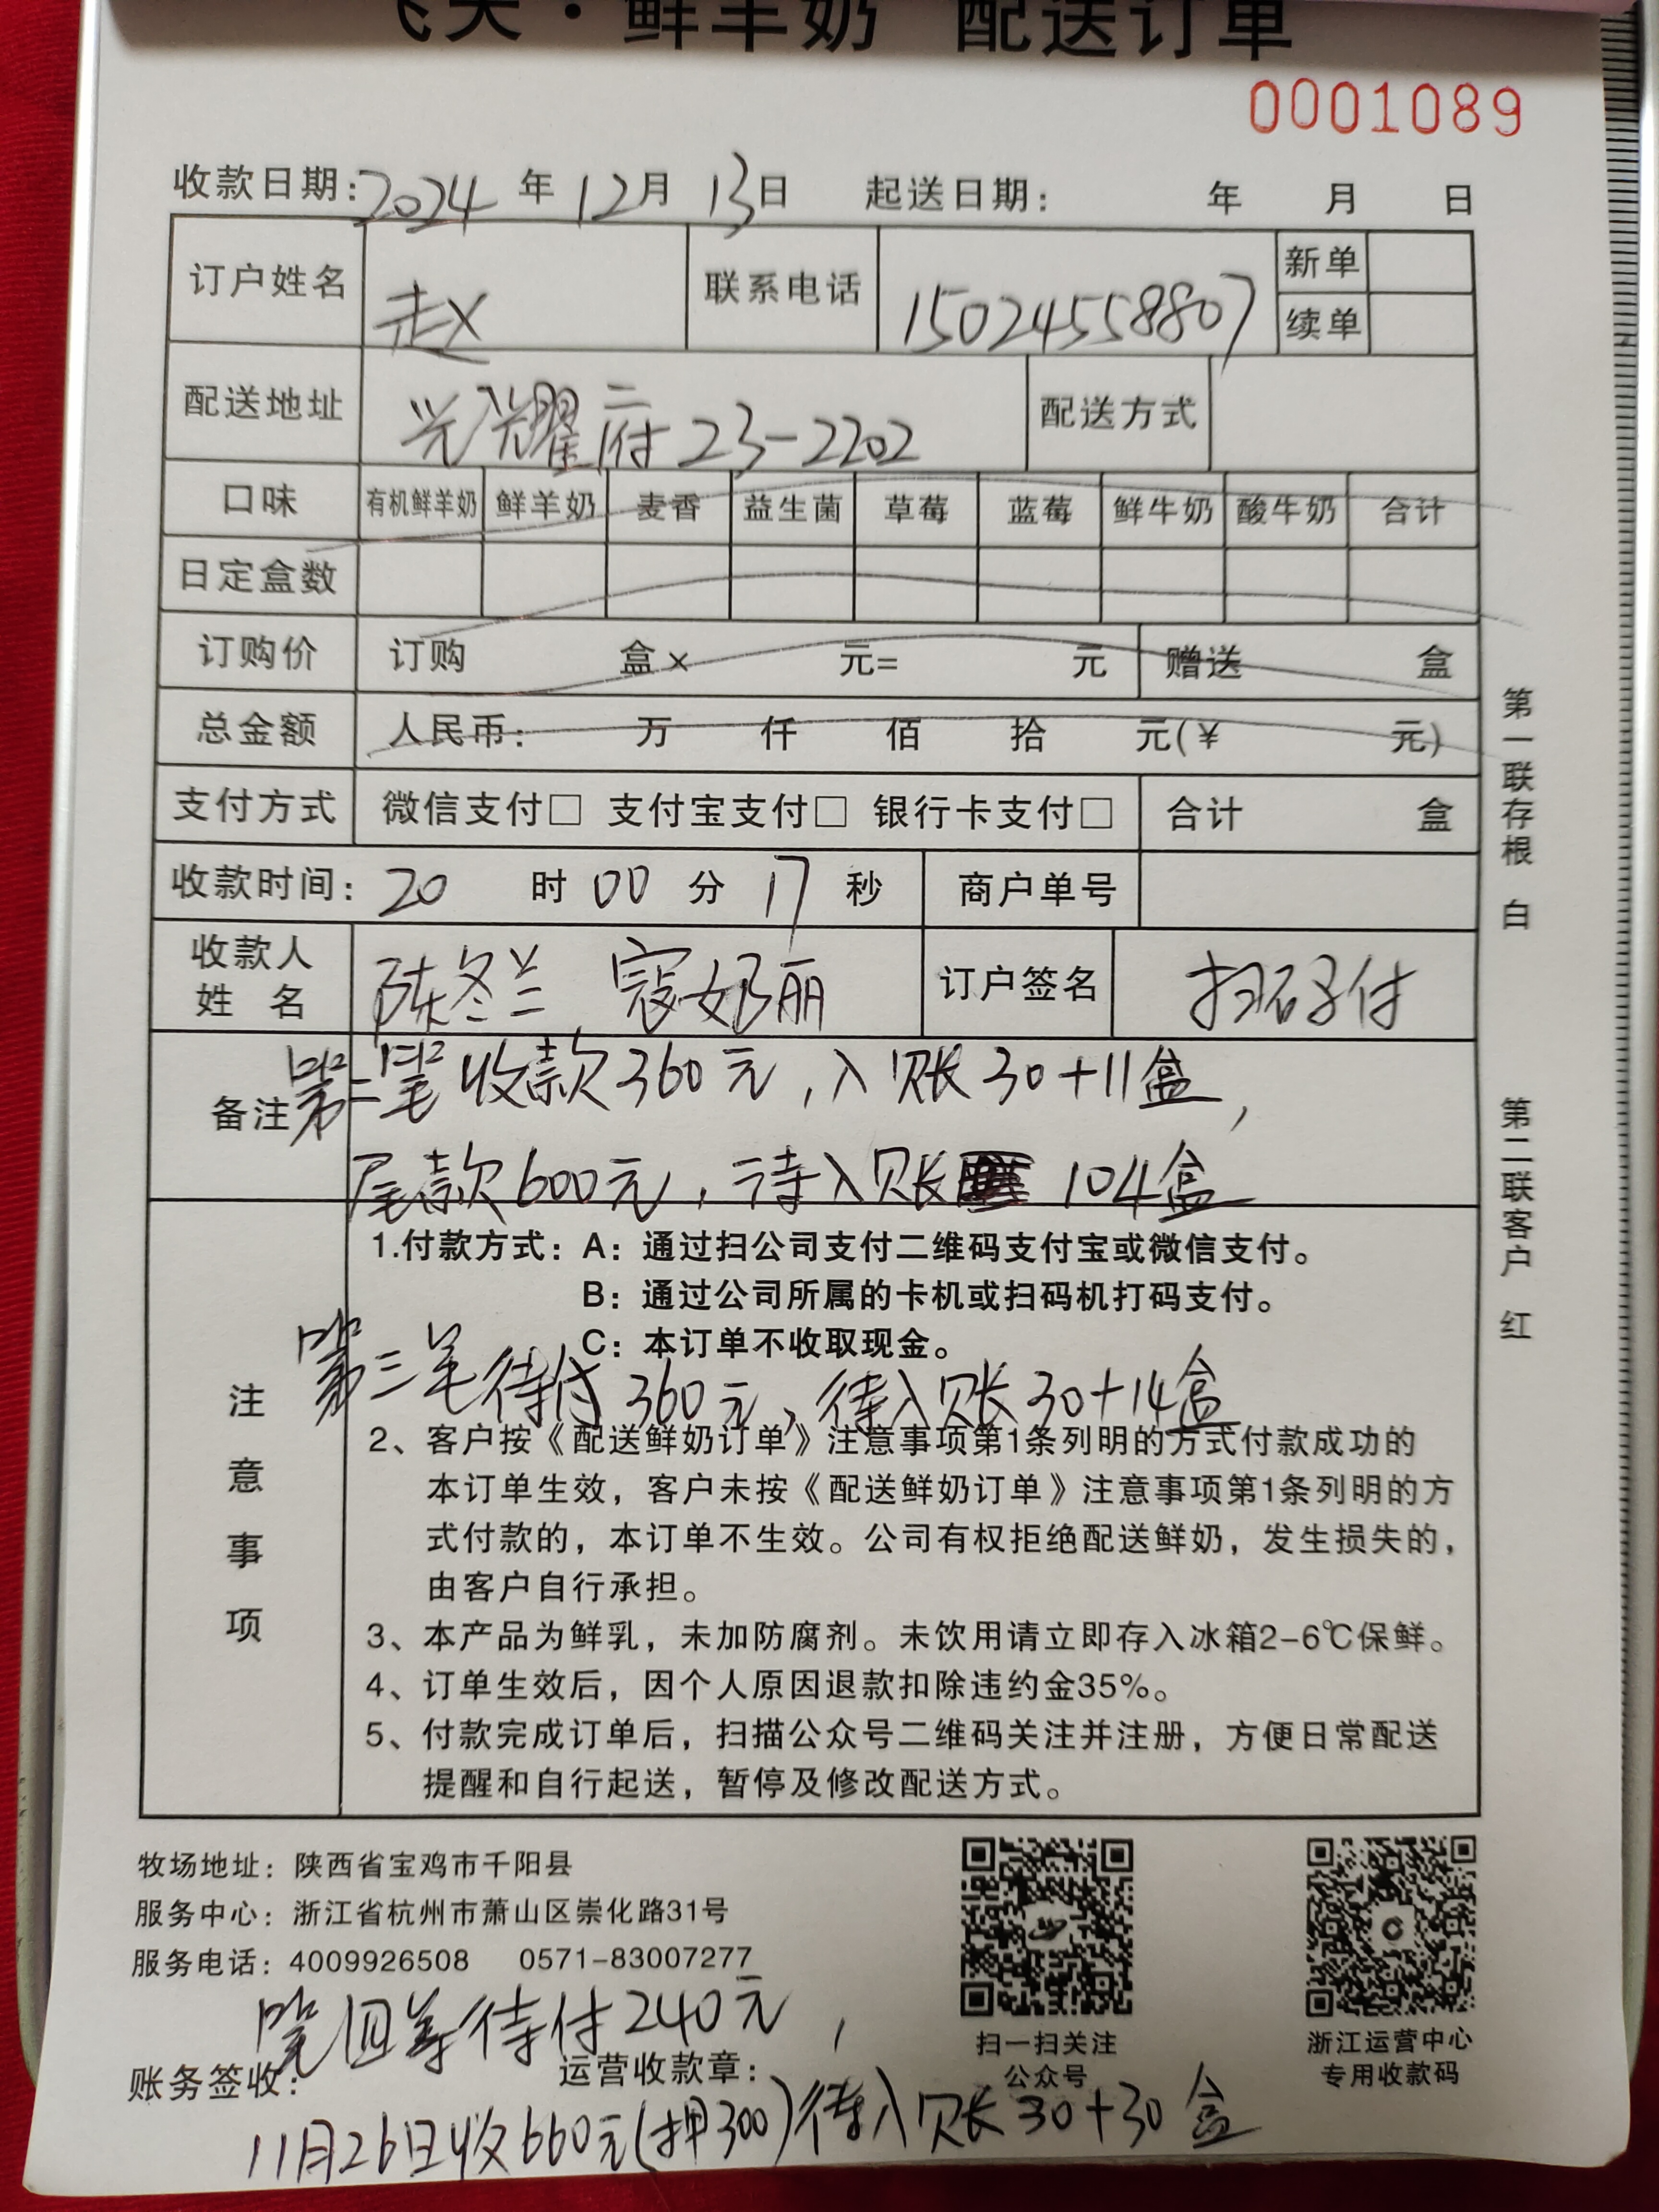 飞天·鲜羊奶 配送订单
0001089
收款日期：2024年12月13日 起送日期： 年 月 日
订户姓名 赵 联系电话 15024558807 新单
续单
配送地址 兴耀二府23-2202 配送方式
口味 有机鲜羊奶 鲜羊奶 麦香 益生菌 草莓 蓝莓 鲜牛奶 酸牛奶 合计
日定盒数
订购价 订购 盒× 元= 元 赠送 盒
总金额 人民币： 万 仟 佰 拾 元(￥ 元)
支付方式 微信支付□ 支付宝支付□ 银行卡支付□ 合计 盒
收款时间：20时00分17秒 商户单号
收款人姓名 陈冬兰 寇奶丽 订户签名 扫码付
备注 第二笔收款360元，入账30+11盒，
尾款600元，待入账 104盒
注意事项
1.付款方式：A：通过扫公司支付二维码支付宝或微信支付。
B：通过公司所属的卡机或扫码机打码支付。
C：本订单不收取现金。
第三笔待付360元，待入账30+14盒
2、客户按《配送鲜奶订单》注意事项第1条列明的方式付款成功的
本订单生效，客户未按《配送鲜奶订单》注意事项第1条列明的方
式付款的，本订单不生效。公司有权拒绝配送鲜奶，发生损失的，
由客户自行承担。
3、本产品为鲜乳，未加防腐剂。未饮用请立即存入冰箱2-6℃保鲜。
4、订单生效后，因个人原因退款扣除违约金35%。
5、付款完成订单后，扫描公众号二维码关注并注册，方便日常配送
提醒和自行起送，暂停及修改配送方式。
第一联存根 白
第二联客户 红
牧场地址：陕西省宝鸡市千阳县
服务中心：浙江省杭州市萧山区崇化路31号
服务电话：4009926508 0571-83007277
第四笔待付240元，
扫一扫关注
公众号
浙江运营中心
专用收款码
账务签收： 运营收款章：
11月26日收660元(押300)待入账30+30盒